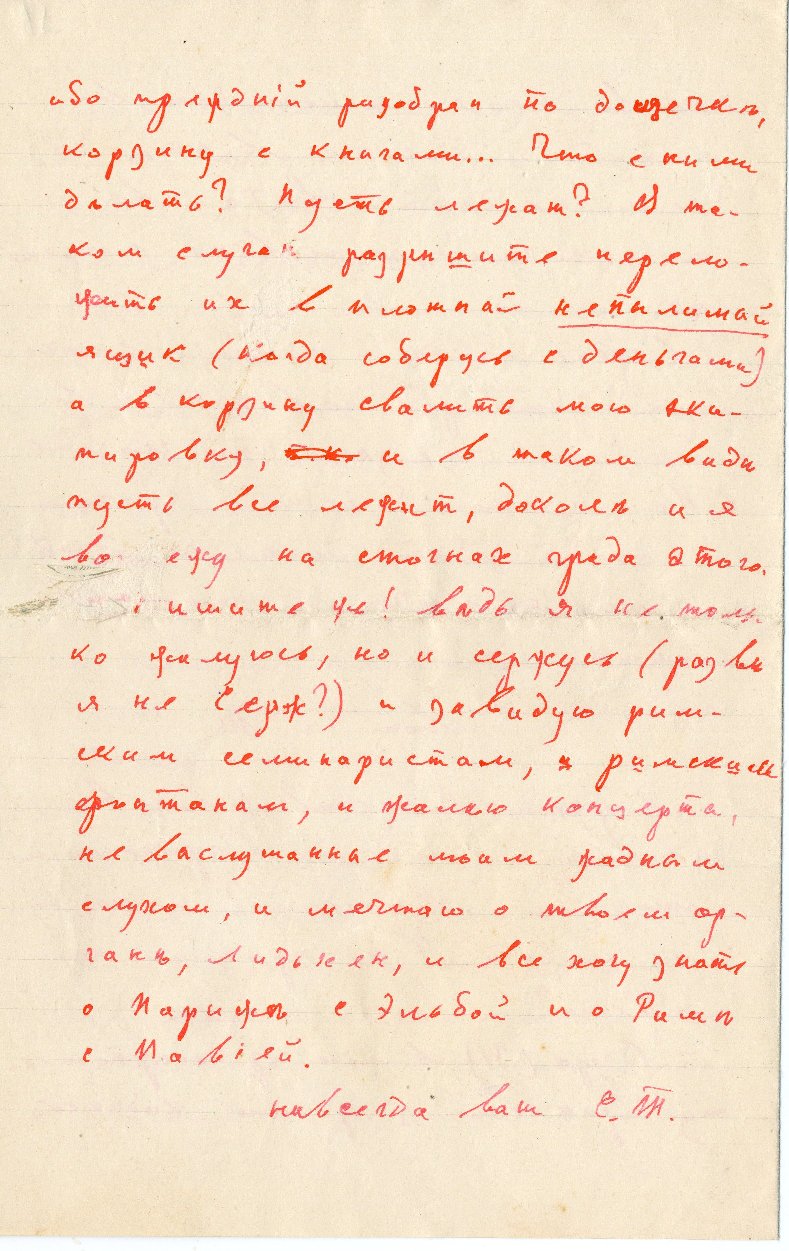 ибо прежній разобран по дощечкѣ,
корзину с книгами... Что с ними
дѣлать? Пусть лежат? В та-
ком случаѣ разрѣшите перело-
жить их в плотный непылимый
ящик (когда соберусь с деньгами)
а в корзину свалить мою эки-
пировку, и в таком видѣ
пусть все лежит, доколѣ и я
на стогнах града этого.
пишите же! вѣдь я не толь-
ко жалуюсь, но и сержусь (развѣ
я не Серж?) и завидую рим-
ским семинаристам, и римским
фонтанам, и жалѣю концерта,
не выслушанные моим жадным
слухом, и мечтаю о твоем ор-
ганѣ, Лидькен, и все хочу знать
о Парижѣ с Эльбой и о Римѣ
с Павіей.
навсегда ваш С. Т.